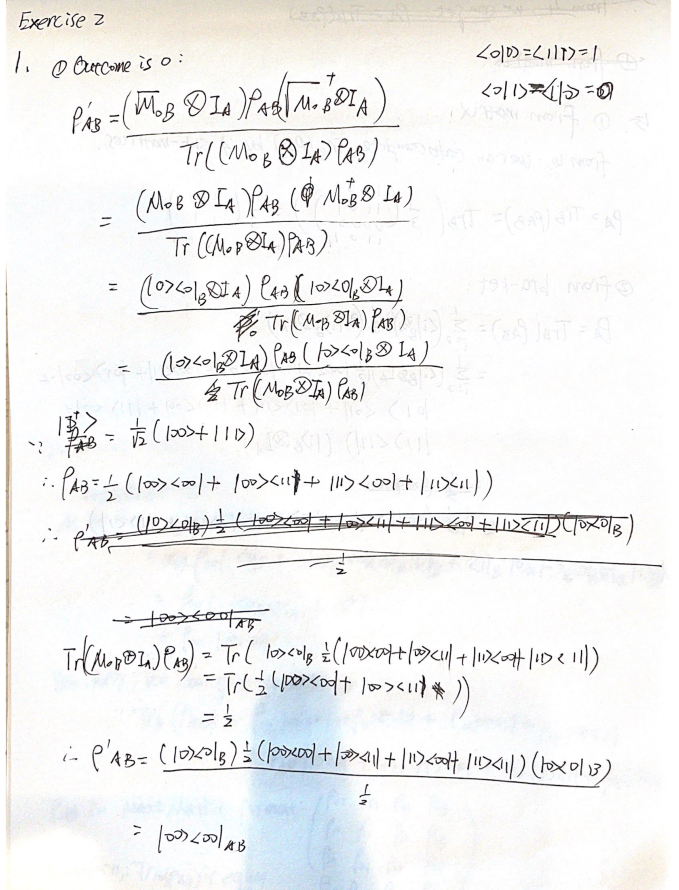 Exercise 2
1. ① Outcome is 0:
<0|0>=<1|1>=1
<0|1>=<1|0>=0
ρ'AB = (√M₀B ⊗ IA) ρAB (√M₀B† ⊗ IA) / Tr((M₀B ⊗ IA) ρAB)
= (M₀B ⊗ IA) ρAB (M₀B† ⊗ IA) / Tr((M₀B ⊗ IA) ρAB)
= (|0><0|B ⊗ IA) ρAB (|0><0|B ⊗ IA) / Tr(M₀B ⊗ IA) ρAB)
= (|0><0|B ⊗ IA) ρAB (|0><0|B ⊗ IA) / Tr(M₀B ⊗ IA) ρAB)
∵ |Φ⁺>AB = 1/√2 (|00> + |11>)
∴ ρAB = 1/2 (|00><00| + |00><11| + |11><00| + |11><11|)
∴ ρ'AB = (|0><0|B) 1/2 (|00><00| + |00><11| + |11><00| + |11><11|) (|0><0|B) / 1/2
= |00><00|AB
Tr((M₀B ⊗ IA) ρAB) = Tr( |0><0|B 1/2 (|00><00| + |00><11| + |11><00| + |11><11|)
= Tr(1/2 (|00><00| + |00><11| ))
= 1/2
∴ ρ'AB = (|0><0|B) 1/2 (|00><00| + |00><11| + |11><00| + |11><11|) (|0><0|B) / 1/2
= |00><00|AB